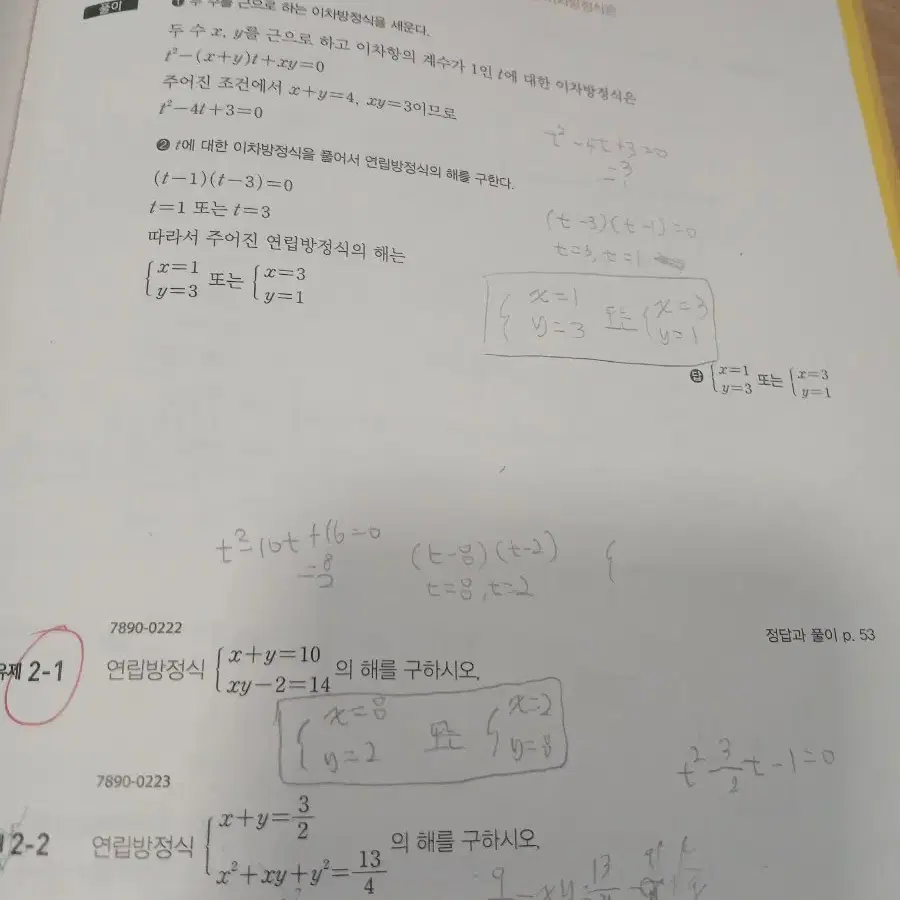 풀이
❶ 두 수를 근으로 하는 이차방정식을 세운다.
두 수 x, y를 근으로 하고 이차항의 계수가 1인 t에 대한 이차방정식은
t²-(x+y)t+xy=0
주어진 조건에서 x+y=4, xy=3이므로
t²-4t+3=0
t²-4t+3=0
-3
-1
❷ t에 대한 이차방정식을 풀어서 연립방정식의 해를 구한다.
(t-1)(t-3)=0
(t-3)(t-1)=0
t=1 또는 t=3
t=3, t=1
따라서 주어진 연립방정식의 해는
{x=1 또는 {x=3
y=3 y=1
{x=1 또는 {x=3
y=3 y=1
답 {x=1 또는 {x=3
y=3 y=1
t²-10t+16=0
-8
-2
(t-8)(t-2)
t=8, t=2
{
7890-0222
정답과 풀이 p. 53
유제 2-1 연립방정식 {x+y=10
xy-2=14 의 해를 구하시오.
{x=8 또는 {x=2
y=2 y=8
t² 3/2t-1=0
7890-0223
2-2 연립방정식 {x+y=3/2
x²+xy+y²=13/4 의 해를 구하시오.
9 -xy=13